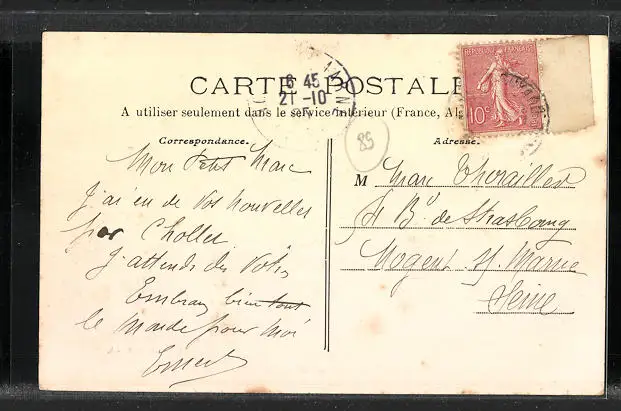 CARTE POSTALE
A utiliser seulement dans le service intérieur (France, Al
RÉPUBLIQUE FRANÇAISE
10c
6 45
21 -10
85
Correspondance.
Mon Petit Marc
J'ai eu de vos nouvelles
par Chollet
J'attends des Votres
Embrassez bien tout
le monde pour moi
Ernest
Adresse.
M Marc Thorailler
Bd de Strasbourg
Nogent s/ Marne
Seine